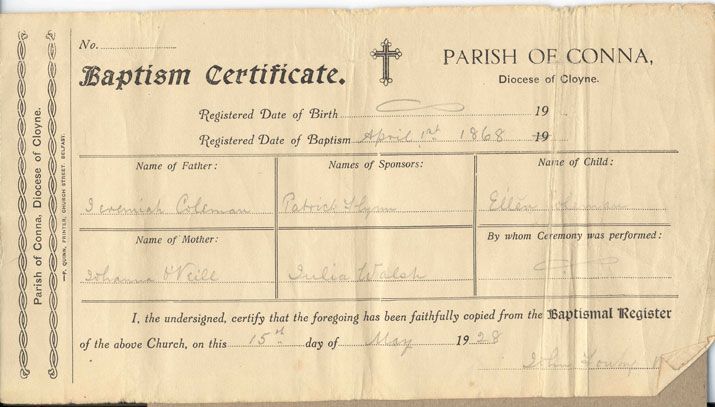 No.
PARISH OF CONNA,
Baptism Certificate.
Diocese of Cloyne.
Registered Date of Birth 19
Registered Date of Baptism April 1st 1868 19
Name of Father: Names of Sponsors: Name of Child:
Jeremiah Coleman Patrick Flynn Ellen Coleman
Name of Mother: By whom Ceremony was performed:
Johanna O'Neill Julia Walsh
I, the undersigned, certify that the foregoing has been faithfully copied from the Baptismal Register
of the above Church, on this 15th day of May 1928
John
Parish of Conna, Diocese of Cloyne.
QUINN, PRINTER, CHURCH STREET, BELFAST.